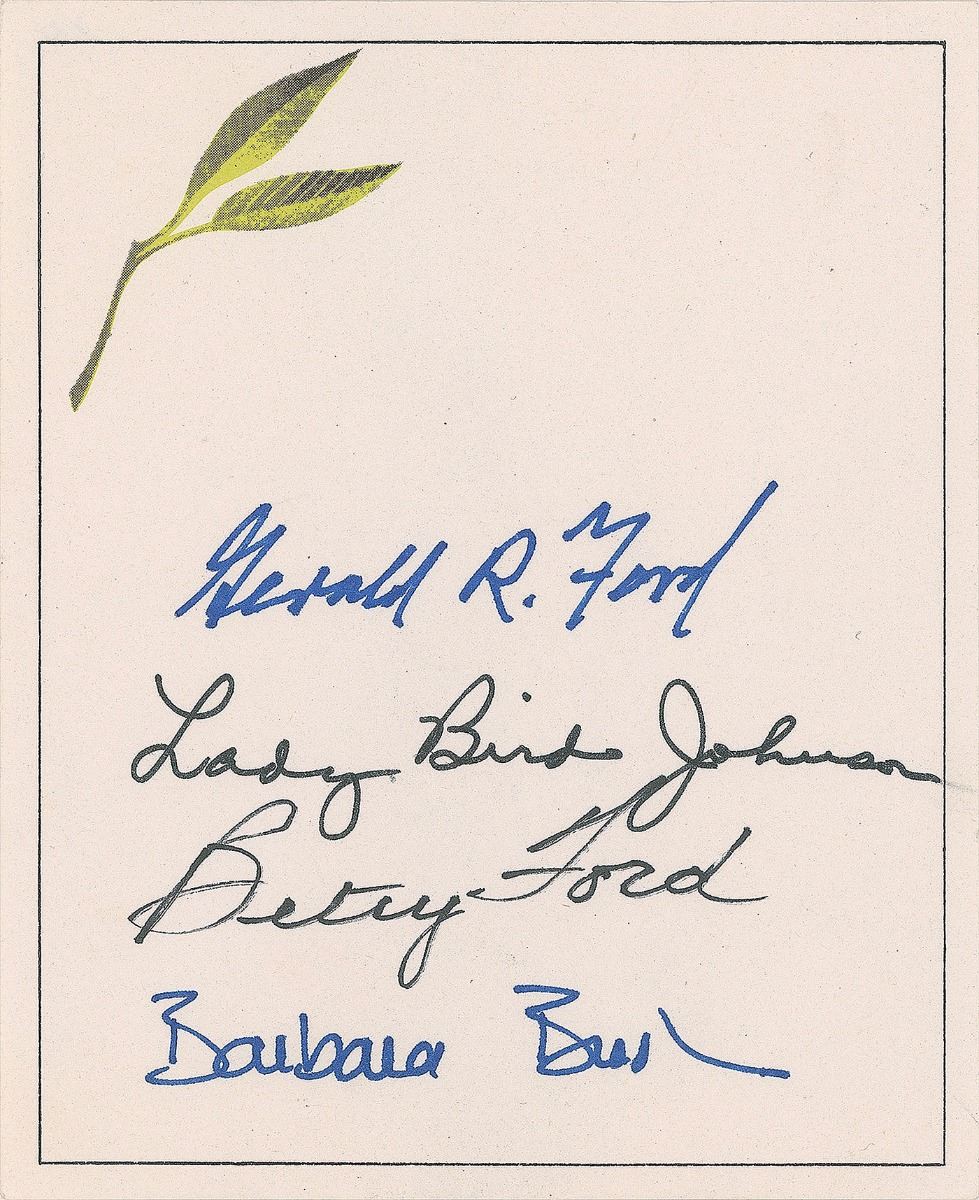 Gerald R. Ford
Lady Bird Johnson
Betty Ford
Barbara Bush